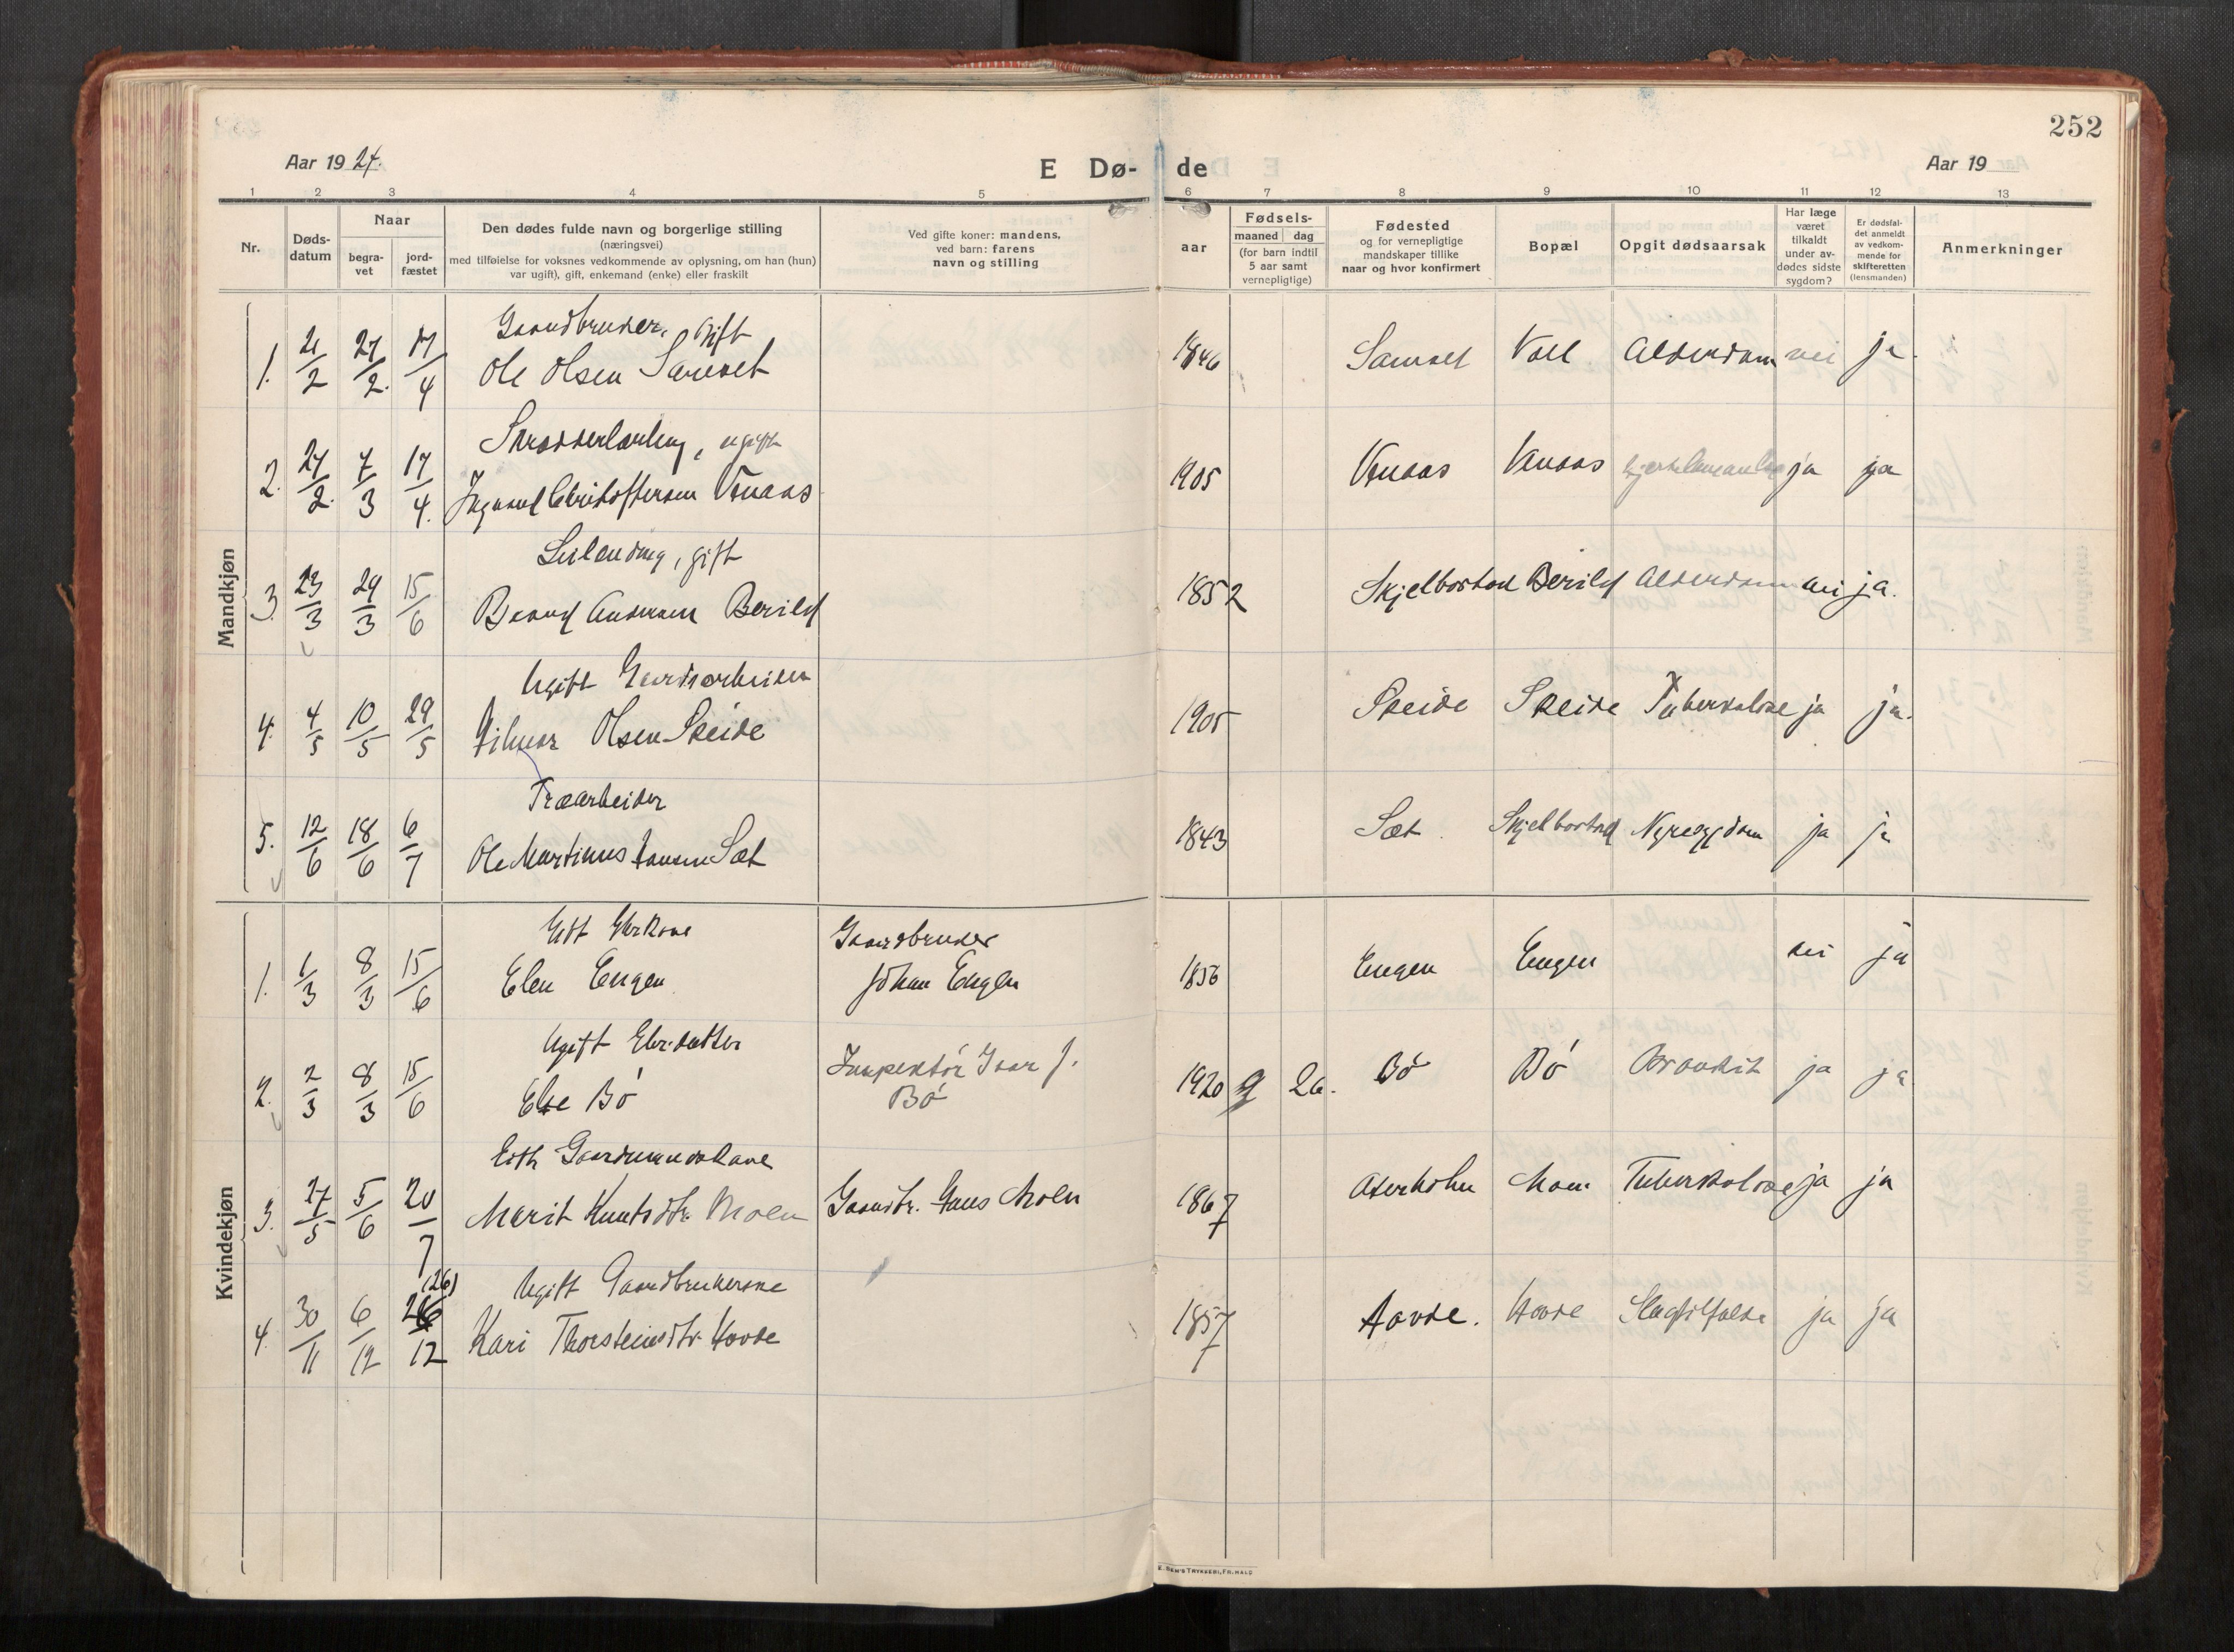 252
Aar 1924.
E Dø- de
Aar 19
1 2 3 4 5 6 7 8 9 10 11 12 13
Nr.
Døds-
datum
Naar
begra-
vet
jord-
fæstet
Den dødes fulde navn og borgerlige stilling
(næringsvei)
med tilføielse for voksnes vedkommende av oplysning, om han (hun)
var ugift), gift, enkemand (enke) eller fraskilt
Ved gifte koner: mandens,
ved barn: farens
navn og stilling
aar
Fødsels-
maaned dag
(for barn indtil
5 aar samt
vernepligtige)
Fødested
og for vernepligtige
mandskaper tillike
naar og hvor konfirmert
Bopæl
Opgit dødsaarsak
Har læge
været
tilkaldt
under av-
dødes sidste
sygdom?
Er dødsfal-
det anmeldt
av vedkom-
mende for
skifteretten
(lensmanden)
Anmerkninger
Mandkjøn
Gaardbruker, Gift
1. 21/2 27/2. 17/4 Ole Olsen 1846 Voll Alderdom nei ja.
ugift
2. 27/2. 7/3 17/4. Venaas 1905 Venaas Venaas ja ja
gift
3. 23/3 29/3 15/6 Andersen Berild 1852 Skjelbostad Berild Alderdom nei ja.
Ugift Gaardsarbeider
4. 4/5 10/5 29/5 Hilmar Olsen Skeide 1905 Skeide Skeide Tuberkulose ja ja.
Træarbeider
5. 12/6 18/6 6/7 Ole Martinus Hansen Sæt 1843 Sæt. Skjelbostad Nyresygdom ja ja
Kvindekjøn
Gift Gbr.kone Gaardbruker
1. 1/3 8/3 15/6 Elen Engen Johan Engen 1856 Engen Engen nei ja
Ugift Gbr.datter Inspektør Ivar J.
2. 2/3 8/3 15/6 Else Bø Bø 1920 9 26. Bø Bø Bronkit ja ja
Gift Gaardmandskone
3. 27/5 5/6 20/7 Marit Knutsdtr. Moen Gaardbr. Hans Moen 1867 Moen Tuberkulose ja ja
(26) Ugift Gaardbrukerske
4. 30/11 6/12 26/12 Kari Thorsteinsdtr. Hovde 1857 Hovde. Hovde Slagtilfælde ja ja